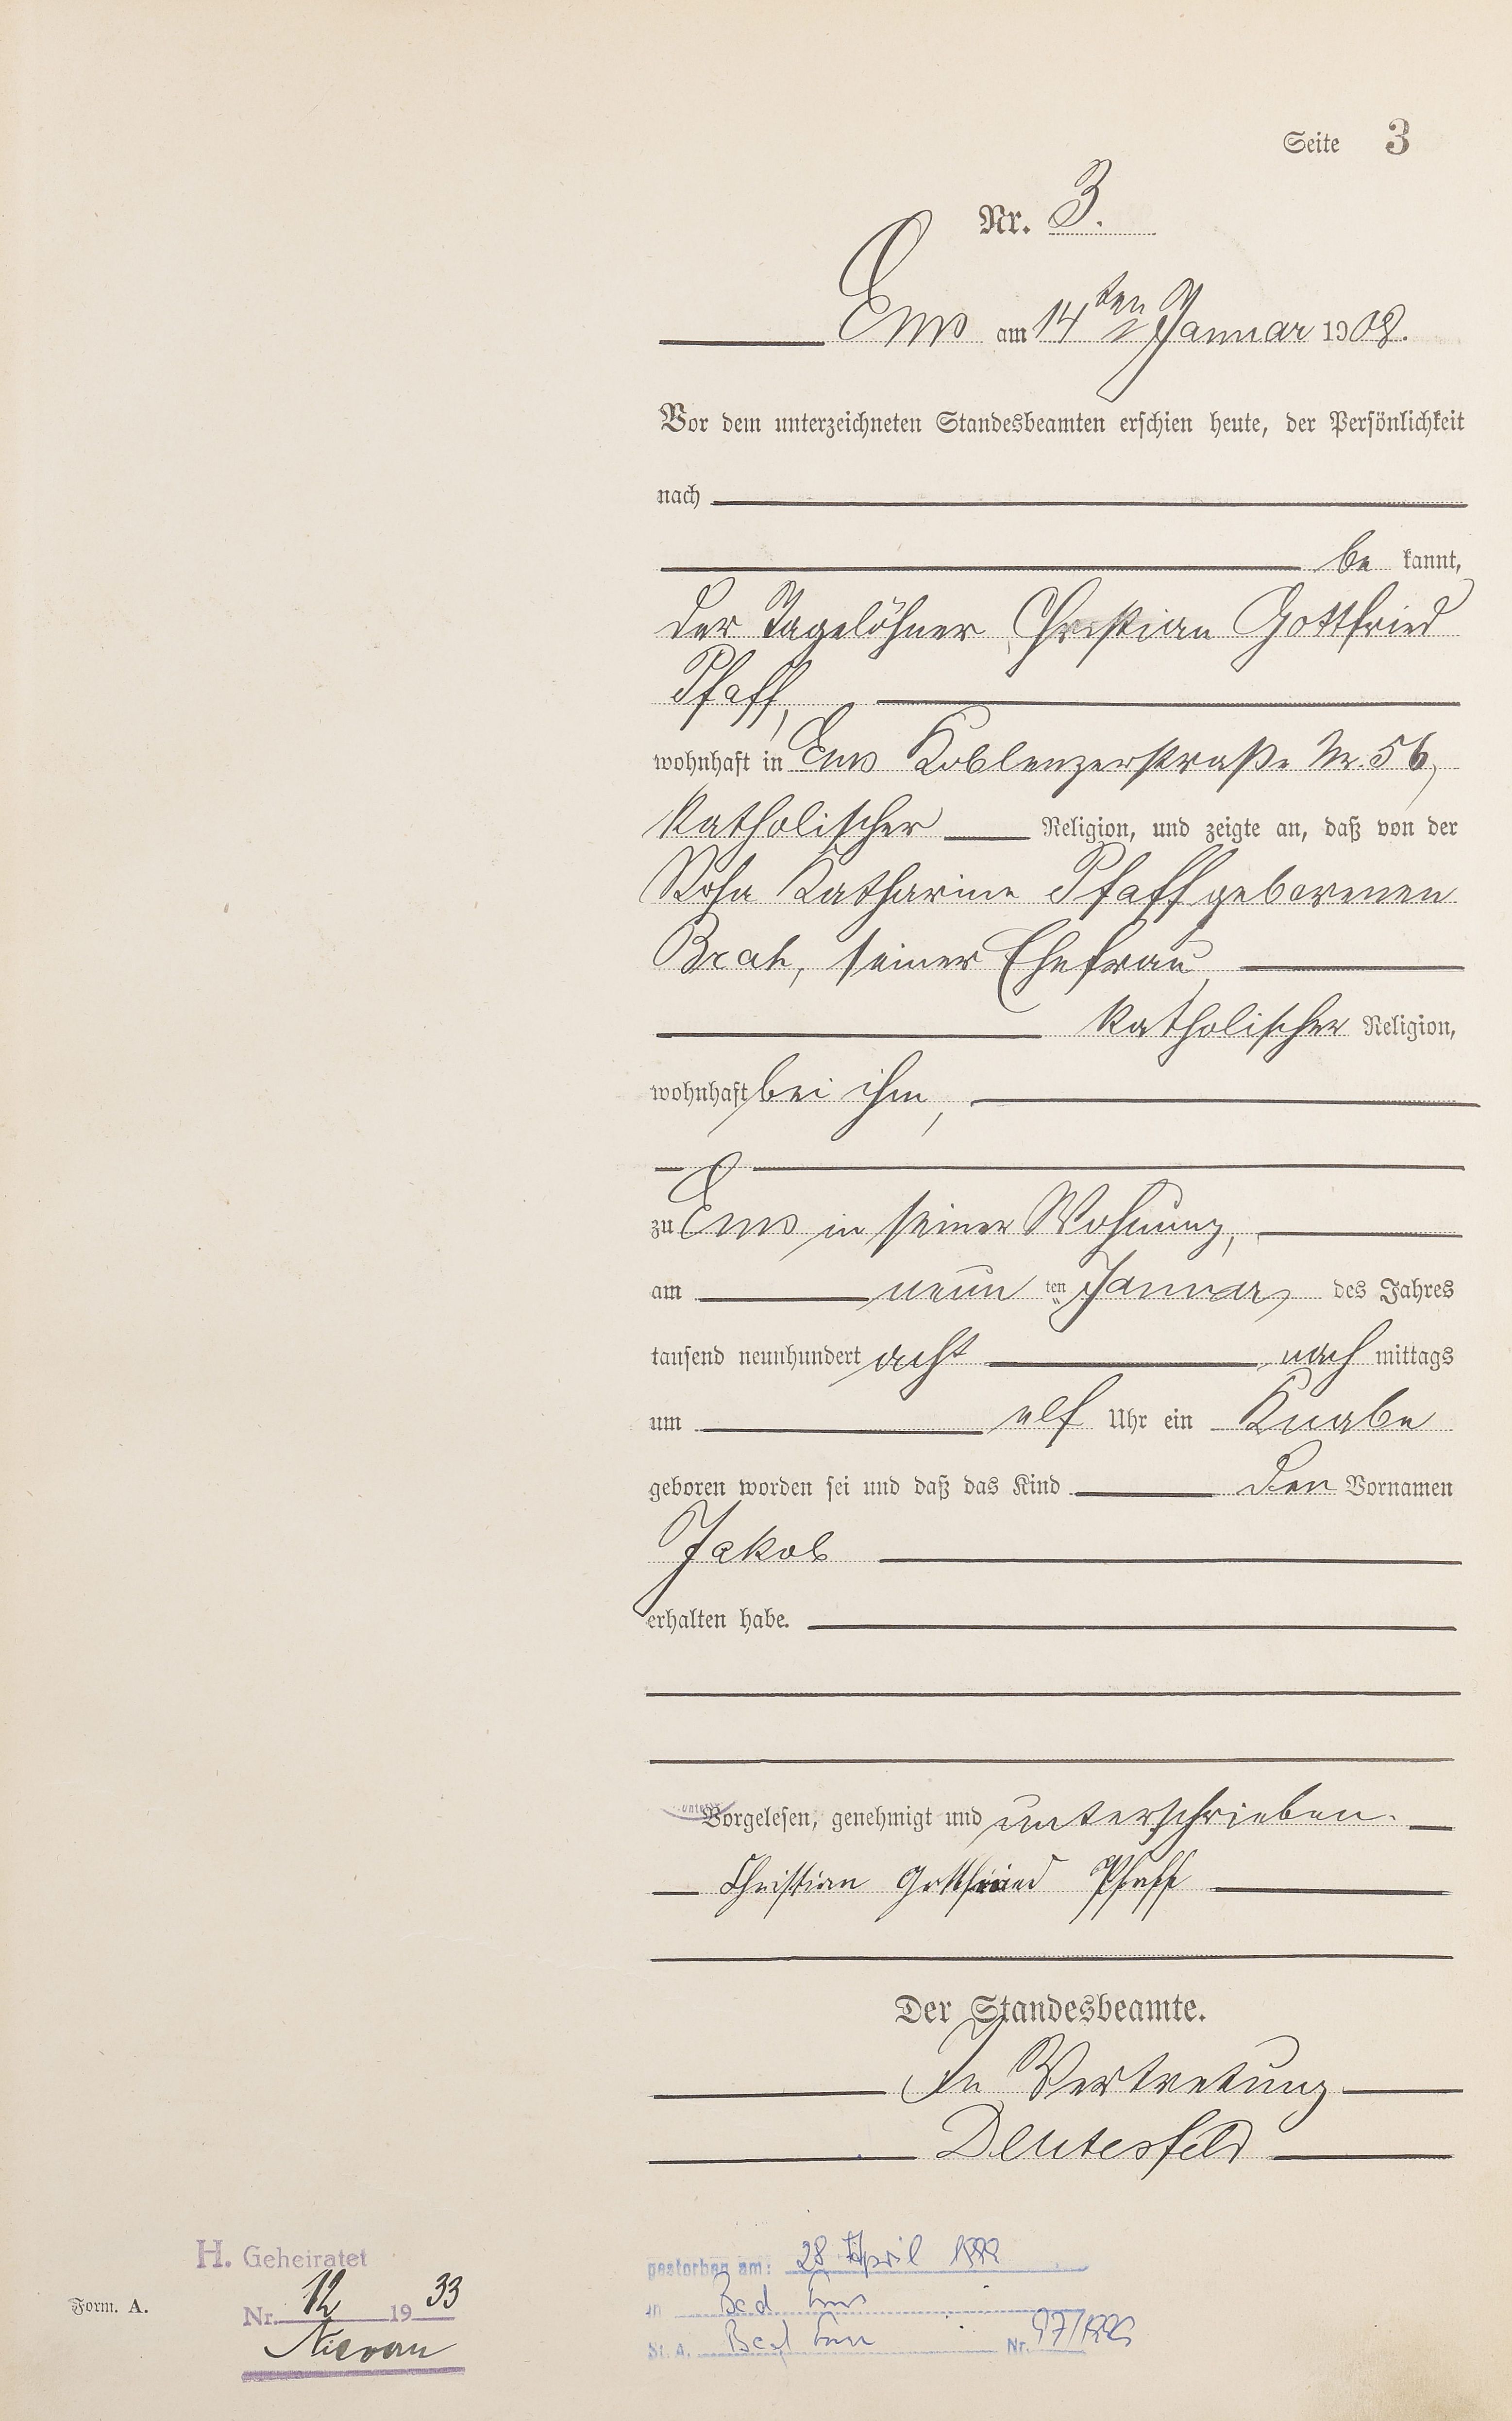 Seite 3
Nr. 3.
Ems am 14ten Januar 1908.
Vor dem unterzeichneten Standesbeamten erschien heute, der Persönlichkeit
nach
be kannt,
der Tagelöhner Christian Gottfried
Pfaff,
wohnhaft in Ems Koblenzerstraße Nr. 56,
katholischer Religion, und zeigte an, daß von der
Rosa Katharina Pfaff geborenen
seiner Ehefrau,
katholischer Religion,
wohnhaft bei ihm,
zu Ems in seiner Wohnung,
am neun ten Januar des Jahres
tausend neunhundert acht nach mittags
um elf Uhr ein Knabe
geboren worden sei und daß das Kind den Vornamen
Jakob
erhalten habe.
Vorgelesen, genehmigt und unterschrieben.
Christian Gottfried Pfaff
Der Standesbeamte.
In Vertretung
Deutesfeld
H. Geheiratet
Nr. 12 1933
Nievern
Form. A.
gestorben am: 28. April
in Bad Ems
St. A. Bad Ems Nr.